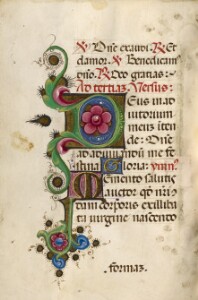 ℟ Dn̄e exaudi ℟ Et
clamor. ℟ Benedicam᷒
dn̄o. ℟ Deo gratias:
Ad tertiaʒ Versus:
Deus in ad
iutorium
meuʒ inten
de: Dn̄e
ad adiuuanduʒ me fe
stina Gloria:
Memento salutis
auctor qđ nr̄i
dam corporis ex illiba
ta uirgine nascendo
formaʒ